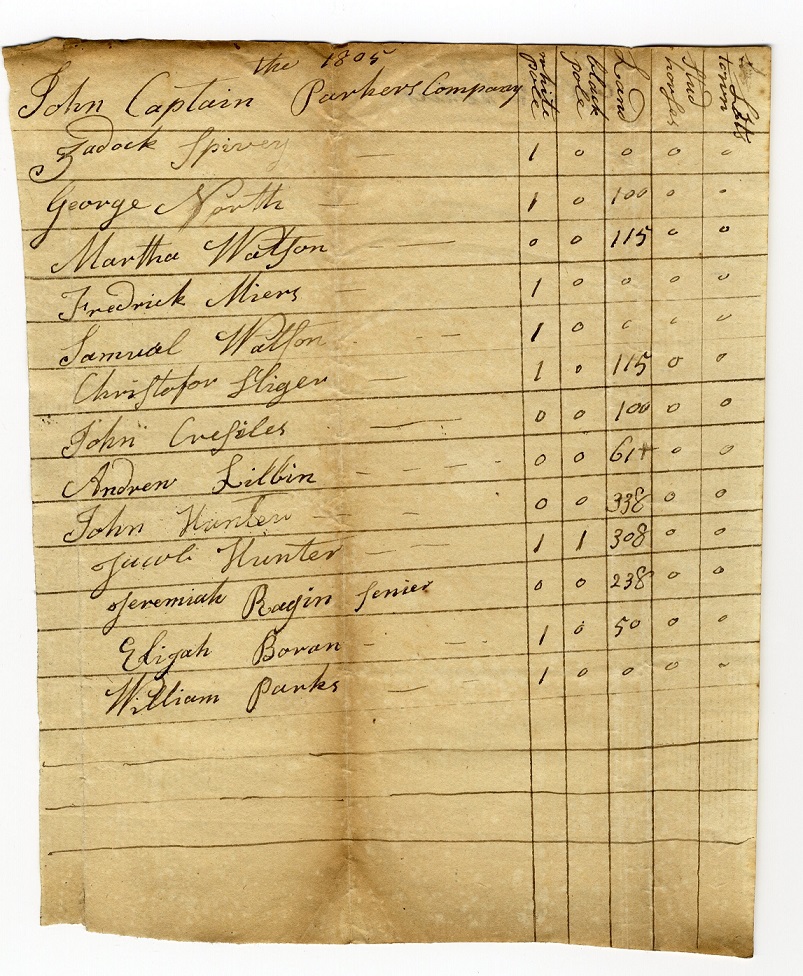 the 1805
John Captain Parkers Company white pole black pole Land Stud horses town Lots
Zadock Spivey 1 0 0 0 0
George North 1 0 100 0 0
Martha Watson 0 0 115 0 0
Fredrick Miers 1 0 0 0 0
Samual Watson 1 0 0 0 0
Christofor 1 0 115 0 0
John 0 0 100 0 0
Andrew 0 0 0 0
John Hunter 0 0 338 0 0
Jacob Hunter 1 1 308 0 0
Jeremiah Ragin senier 0 0 238 0 0
Elijah Bovan 1 0 50 0 0
William Parks 1 0 0 0 0